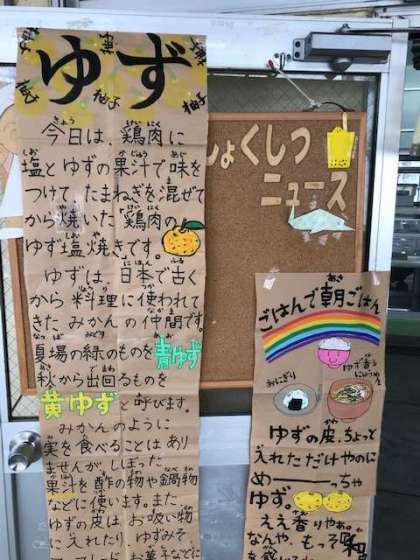 ゆず
柚子
柚子
今日は、鶏肉に
塩とゆずの果汁で味を
つけて、たまねぎを混ぜて
から焼いた「鶏肉の
ゆず塩焼き」です。
ゆずは、日本で古く
から料理に使われて
きたみかんの仲間です。
夏場の緑のものを青ゆず
秋から出回るものを
黄ゆずと呼びます。
みかんのように
実を食べることはあり
ませんが、しぼった
果汁を酢の物や鍋物
などに使います。また
ゆずの皮は、お吸い物
に入れたり、ゆずみそ
お菓子などに
しょくしつ
ニュース
ごはんで朝ごはん
おにぎり
ゆず香る
にゅうめん
ゆずの皮、ちょっと
入れただけやのに
めーーーっちゃ
ゆず。
ええ香りやぁ。
なんや、もっそ